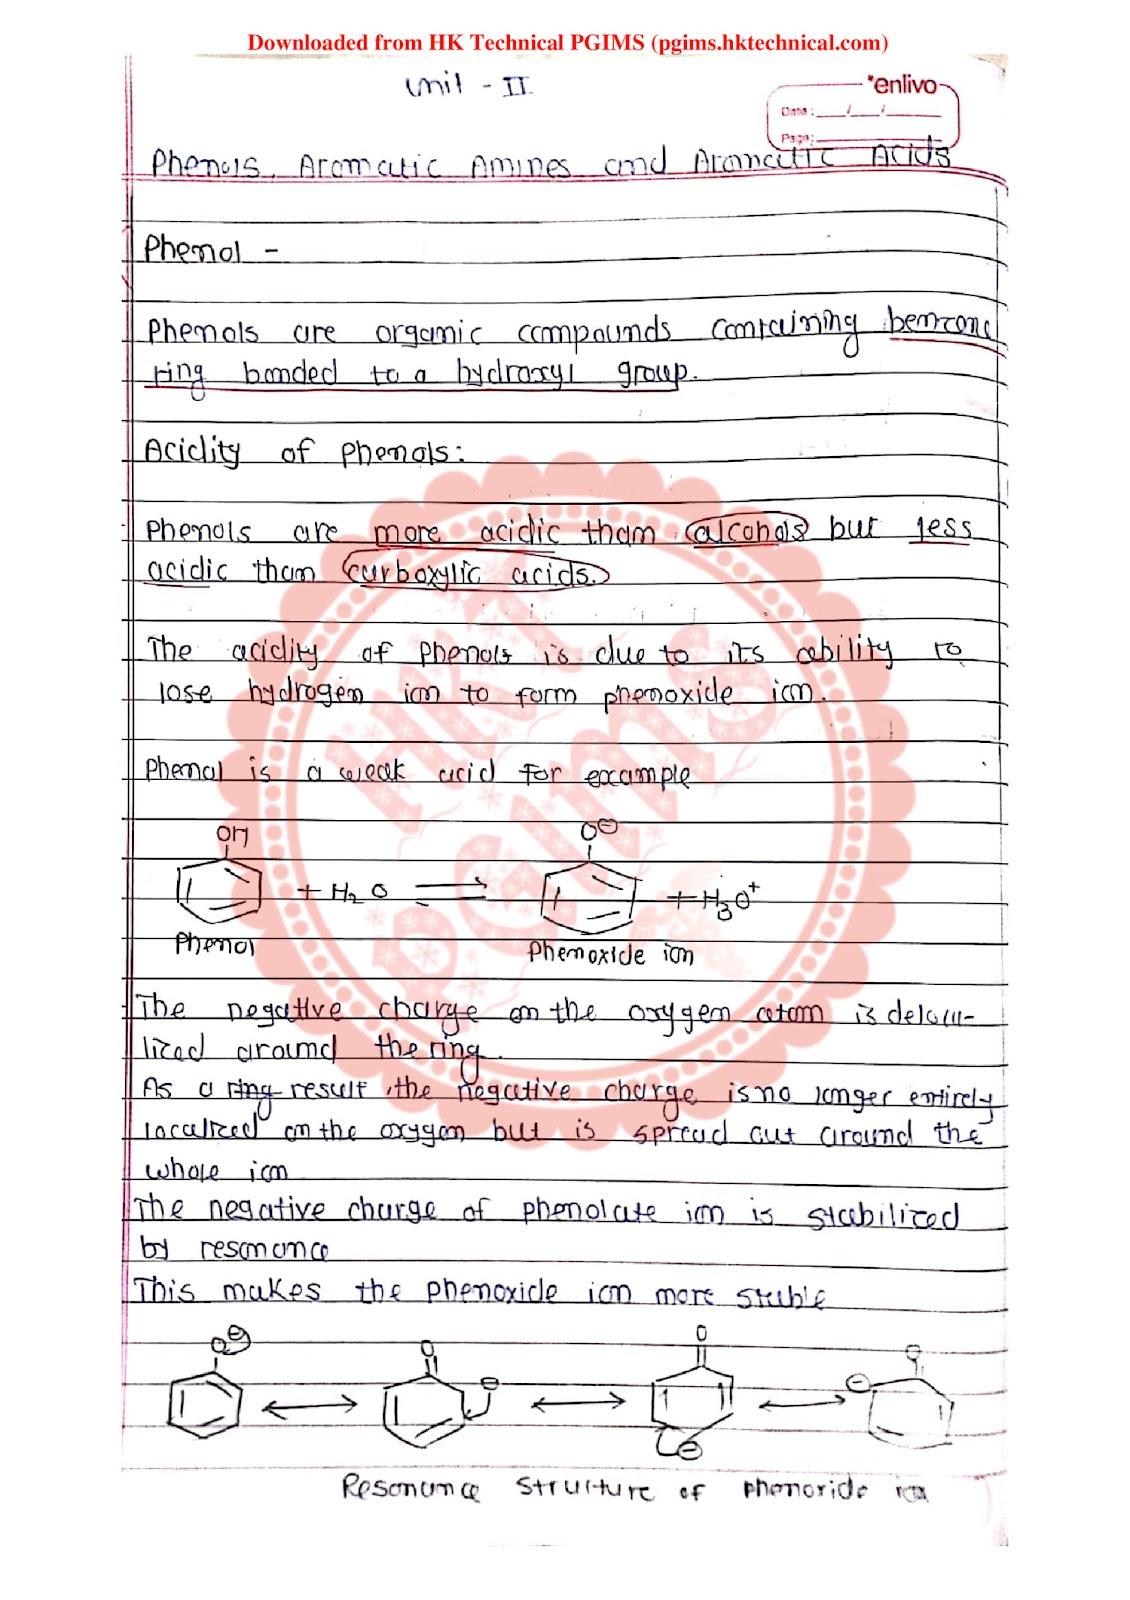 Downloaded from HK Technical PGIMS (pgims.hktechnical.com)
Unit - II
*enlivo
Date : __/__/__
Page:
Phenols, Aromatic Amines and Aromatic Acids
Phenol -
Phenols are organic compounds containing benzene
ring bonded to a hydroxyl group.
Acidity of phenols:
Phenols are more acidic than alcohols but less
acidic than carboxylic acids.
The acidity of phenols is due to its ability to
lose hydrogen ion to form phenoxide ion.
Phenol is a weak acid for example
OH
O⊖
+ H₂O ⇌ + H₃O⁺
Phenol
Phenoxide ion
The negative charge on the oxygen atom is deloca-
lized around the ring.
As a ring result, the negative charge is no longer entirely
localized on the oxygen but is spread out around the
whole ion
The negative charge of phenolate ion is stabilized
by resonance
This makes the phenoxide ion more stable
O⊖
O
⊖
O
⊖
O
⊖
Resonance structure of phenoxide ion
HKT
PGIMS